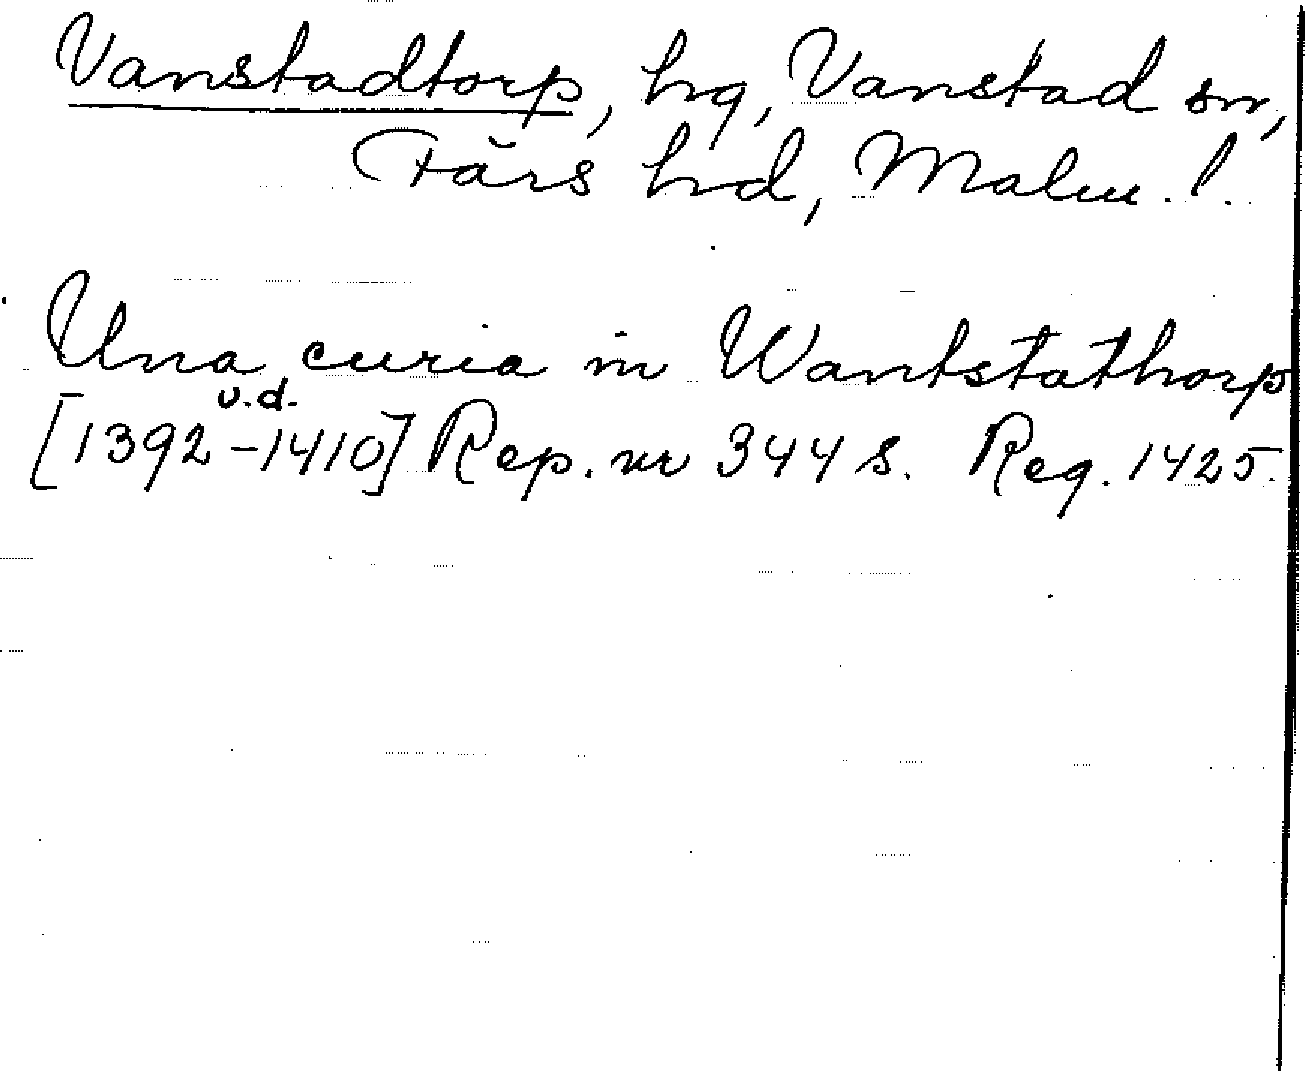 Vanstadtorp, hg, Vanstad sn,
Färs hd, Malm. l.
Una curia in Wantstathorp
u.d.
[1392-1410] Rep. nr 344 s. Reg. 1425.